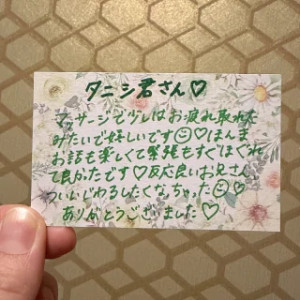 タニシ君さん♡
マッサージで少しはお疲れ取れた
みたいで嬉しいです☺♡ほんま
お話も楽しくて緊張もすぐほぐれ
て良かたです♡反応良いお兄さん、
ついいじわるしたくなっちゃった☺♡
ありがとうございました♡